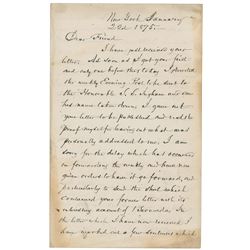 New York January
22d 1875.
Dear Friend
I have just received your
letter. As soon as I got your first
and only one before this to day I directed
the weekly Evening Post to be sent to
the Honorable S. S. Ingham and
his name taken down; I gave
your letter to be published, and read the
proof myself leaving out what was
personally addressed to me. I am
sorry for the delay which has occurred
in forwarding the weekly and have now
given orders to have it go forward, and
particularly to send the sheet which
contained your former letter with its
interesting account of Bermuda. In
the letter which I have now received I
have marked out a few sentences which